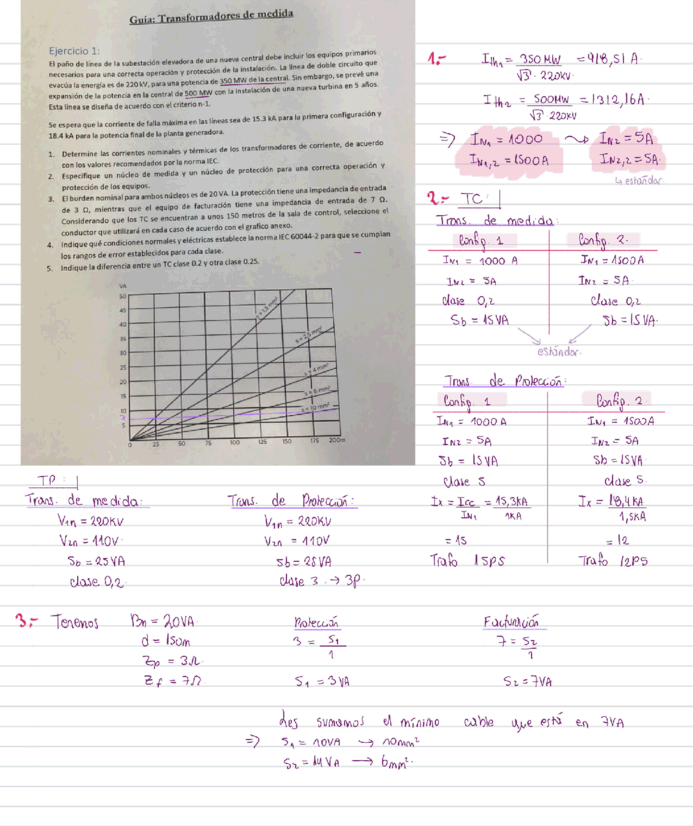 Guía: Transformadores de medida
Ejercicio 1:
El paño de línea de la subestación elevadora de una nueva central debe incluir los equipos primarios
necesarios para una correcta operación y protección de la instalación. La línea de doble circuito que
evacúa la energía es de 220 kV, para una potencia de 350 MW de la central. Sin embargo, se prevé una
expansión de la potencia en la central de 500 MW con la instalación de una nueva turbina en 5 años.
Esta línea se diseña de acuerdo con el criterio n-1.
Se espera que la corriente de falla máxima en las líneas sea de 15.3 kA para la primera configuración y
18.4 kA para la potencia final de la planta generadora.
1. Determine las corrientes nominales y térmicas de los transformadores de corriente, de acuerdo
con los valores recomendados por la norma IEC.
2. Especifique un núcleo de medida y un núcleo de protección para una correcta operación y
protección de los equipos.
3. El burden nominal para ambos núcleos es de 20 VA. La protección tiene una impedancia de entrada
de 3 Ω, mientras que el equipo de facturación tiene una impedancia de entrada de 7 Ω.
Considerando que los TC se encuentran a unos 150 metros de la sala de control, seleccione el
conductor que utilizará en cada caso de acuerdo con el grafico anexo.
4. Indique qué condiciones normales y eléctricas establece la norma IEC 60044-2 para que se cumplan
los rangos de error establecidos para cada clase.
5. Indique la diferencia entre un TC clase 0.2 y otra clase 0.25.
VA
50
45
40
35
30
25
20
15
10
7
5
s = 1,5 mm²
s = 2,5 mm²
s = 4 mm²
s = 6 mm²
s = 10 mm²
0 25 50 75 100 125 150 175 200m
1.- Ith1 = 350 MW / √3 · 220kV = 918,51 A
Ith2 = 500MW / √3 220kV = 1312,16A
⇒ IN1 = 1000 ⤳ IN2 = 5A
IN1,2 = 1500A IN2,2 = 5A
↳ estándar
2.- TC:
Trans. de medida:
Config. 1 Config. 2
IN1 = 1000 A IN1 = 1500A
IN2 = 5A IN2 = 5A
clase 0,2 Clase 0,2
Sb = 15 VA Sb = 15 VA
estándar
Trans de Protección:
Config. 1 Config. 2
IN1 = 1000 A IN1 = 1500A
IN2 = 5A IN2 = 5A
Sb = 15VA Sb = 15VA
Clase 5 clase 5
Ix = Icc / IN1 = 15,3kA / 1kA Ix = 18,4 kA / 1,5kA
= 15 = 12
Trafo 15P5 Trafo 12P5
TP:
Trans. de medida: Trans. de Protección:
V1n = 220KV V1n = 220KV
V2n = 110V V2n = 110V
Sb = 25VA Sb = 25VA
clase 0,2 clase 3 → 3P
3.- Tenemos Bn = 20VA Protección Facturación
d = 150m 3 = S1 / 1 7 = S2 / 1
Zp = 3Ω
Zf = 7Ω S1 = 3VA S2 = 7VA
Les sumamos el mínimo cable que está en 7VA
⇒ S1 = 10VA → 10mm²
S2 = 14 VA → 6mm²